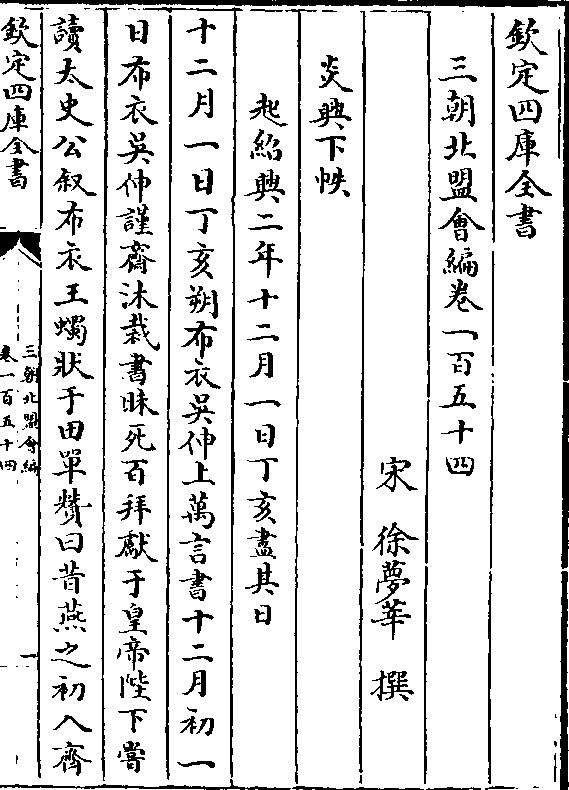 欽定四庫全書
三朝北盟會編卷一百五十四
宋 徐夢莘 撰
炎興下帙
起紹興二年十二月一日丁亥盡其日
十二月一日丁亥朔布衣吳伸上萬言書十二月初一
日布衣吳伸謹齋沐裁書昧死百拜獻于皇帝陛下嘗
讀太史公叙布衣王蠋狀于田單贊曰昔燕之初入齊
欽定四庫全書
三朝北盟會編
卷一百五十四
一